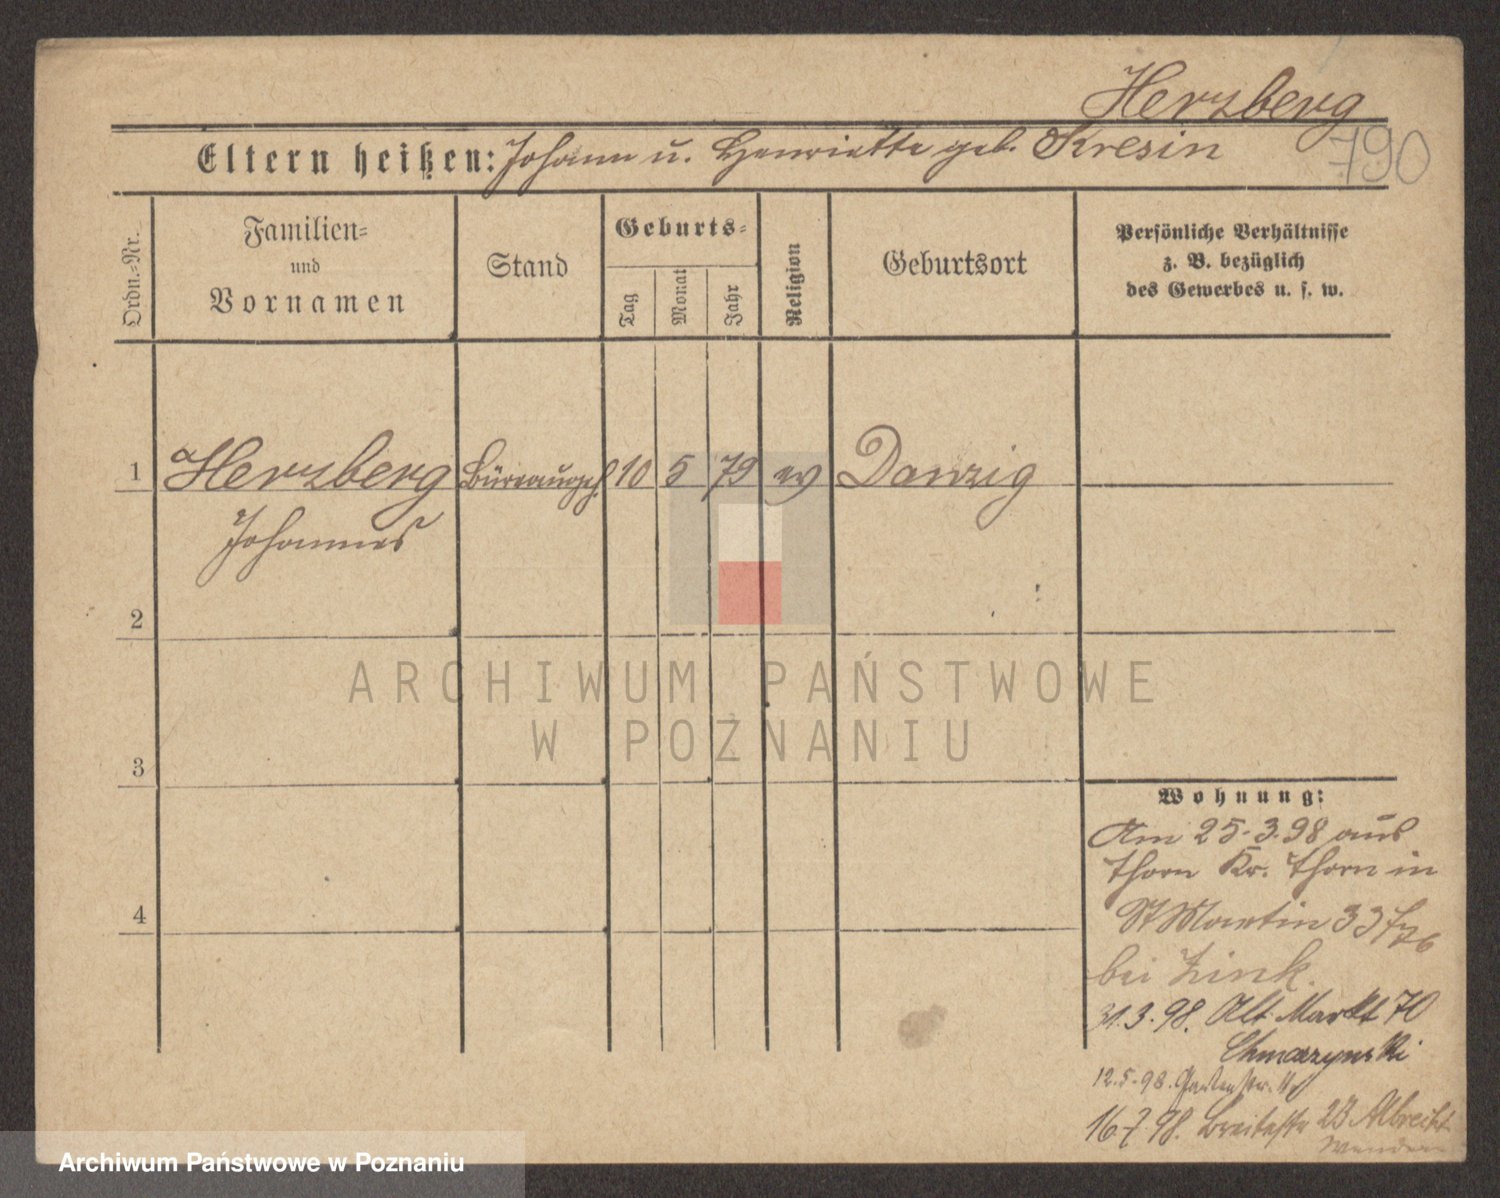 Herzberg
790
Eltern heißen: Johann u. Henriette geb. Kresin
Ordn.=Nr.
Familien=
und
Vornamen
Stand
Geburts=
Tag
Monat
Jahr
Religion
Geburtsort
Persönliche Verhältnisse
z. B. bezüglich
des Gewerbes u. s. w.
1 Herzberg Büreaugeh. 10 5 79 ev Danzig
Johannes
2
3
4
Wohnung:
Am 25.3.98 aus
Thorn Kr. Thorn in
St Martin 33
bei Zink.
31.3.98. Alt. Markt 70
Chmarzynski
12.5.98. Gartenstr.
16.7.98. Breitestr 23 Albrecht
Wenden
ARCHIWUM PAŃSTWOWE
W POZNANIU
Archiwum Państwowe w Poznaniu